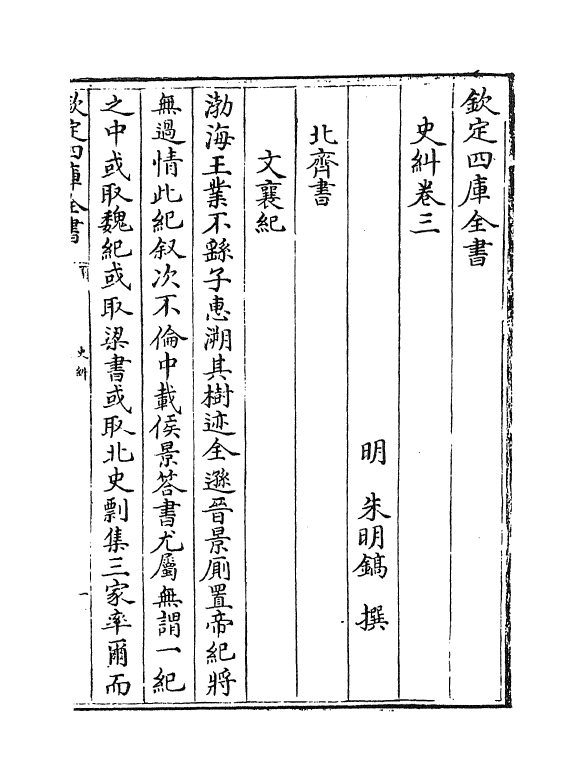 欽定四庫全書
史糾卷三
明 朱明鎬 撰
北齊書
文襄紀
渤海王業不繇子惠溯其樹迹全遜晉景厠置帝紀將
無過情此紀叙次不倫中載侯景答書尤屬無謂一紀
之中或取魏紀或取梁書或取北史剽集三家率爾而
欽定四庫全書
史糾
一